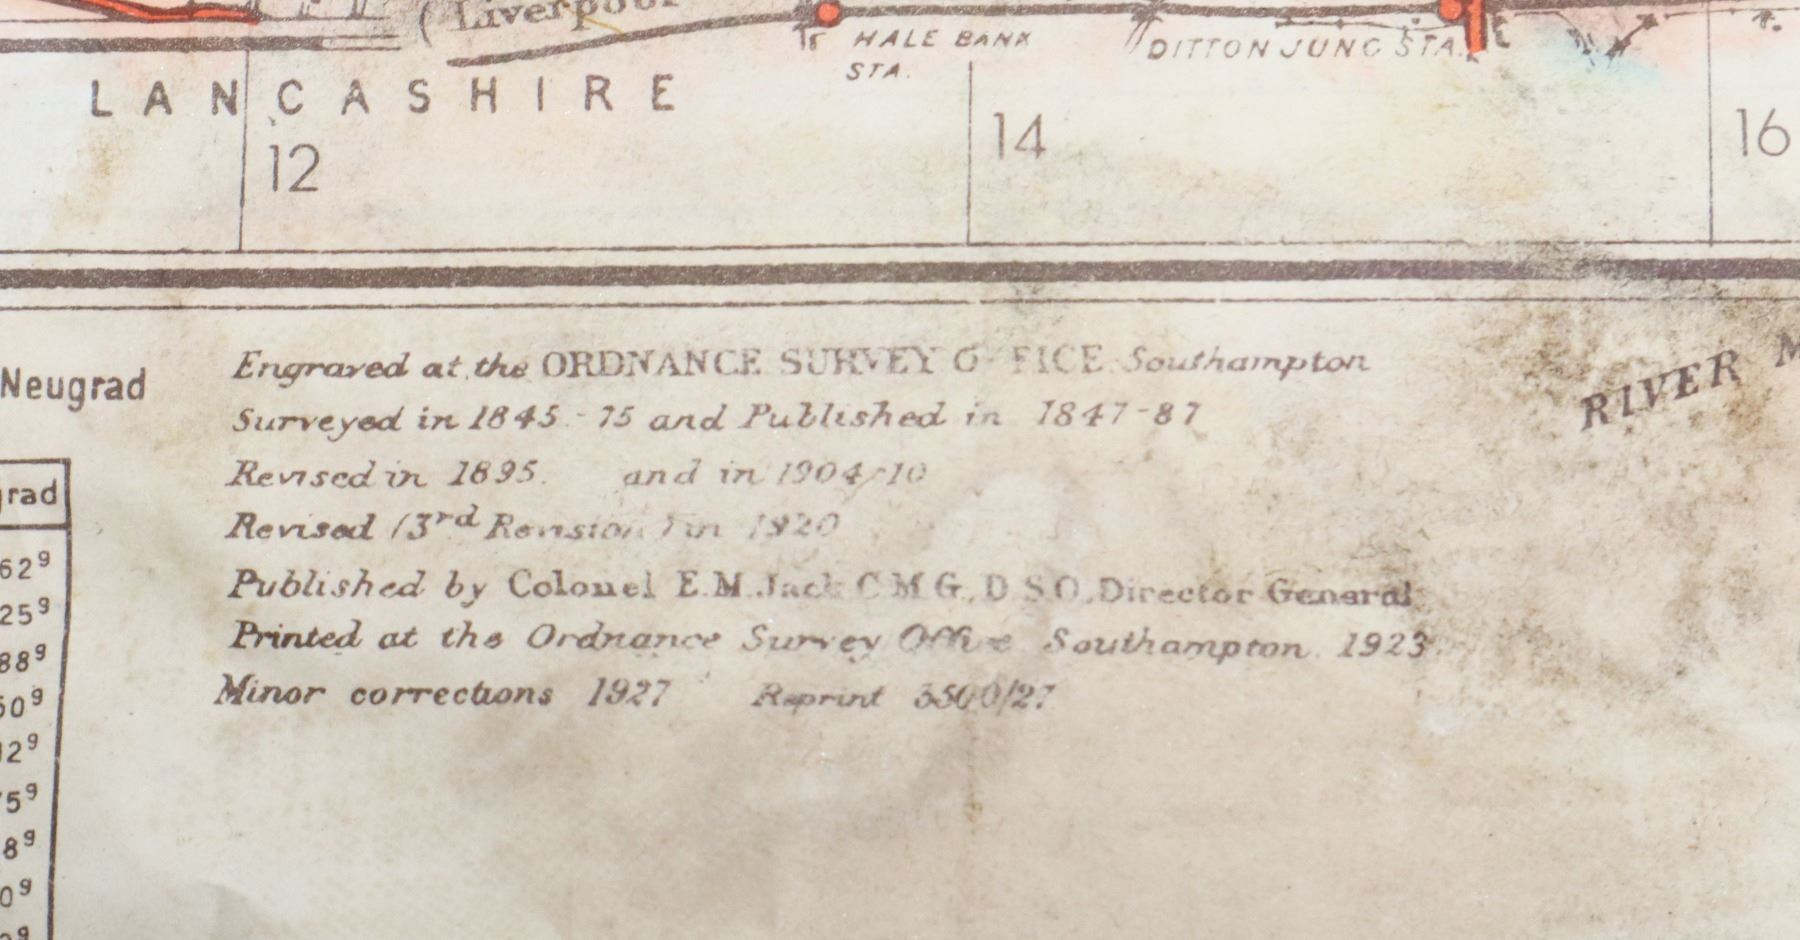 ( Liverpool
HALE BANK
STA.
DITTON JUNC STA.
LANCASHIRE
12
14
16
Neugrad
Engraved at the ORDNANCE SURVEY O FICE Southampton
Surveyed in 1845-75 and Published in 1847-87
Revised in 1895. and in 1904-10
Revised (3rd Revision) in 1920
Published by Colonel E.M.Jack C.M.G., D.S.O. Director General
Printed at the Ordnance Survey Office Southampton. 1923.
Minor corrections 1927 Reprint 3500/27
RIVER M
grad
62g
25g
88g
50g
12g
75g
8g
0g